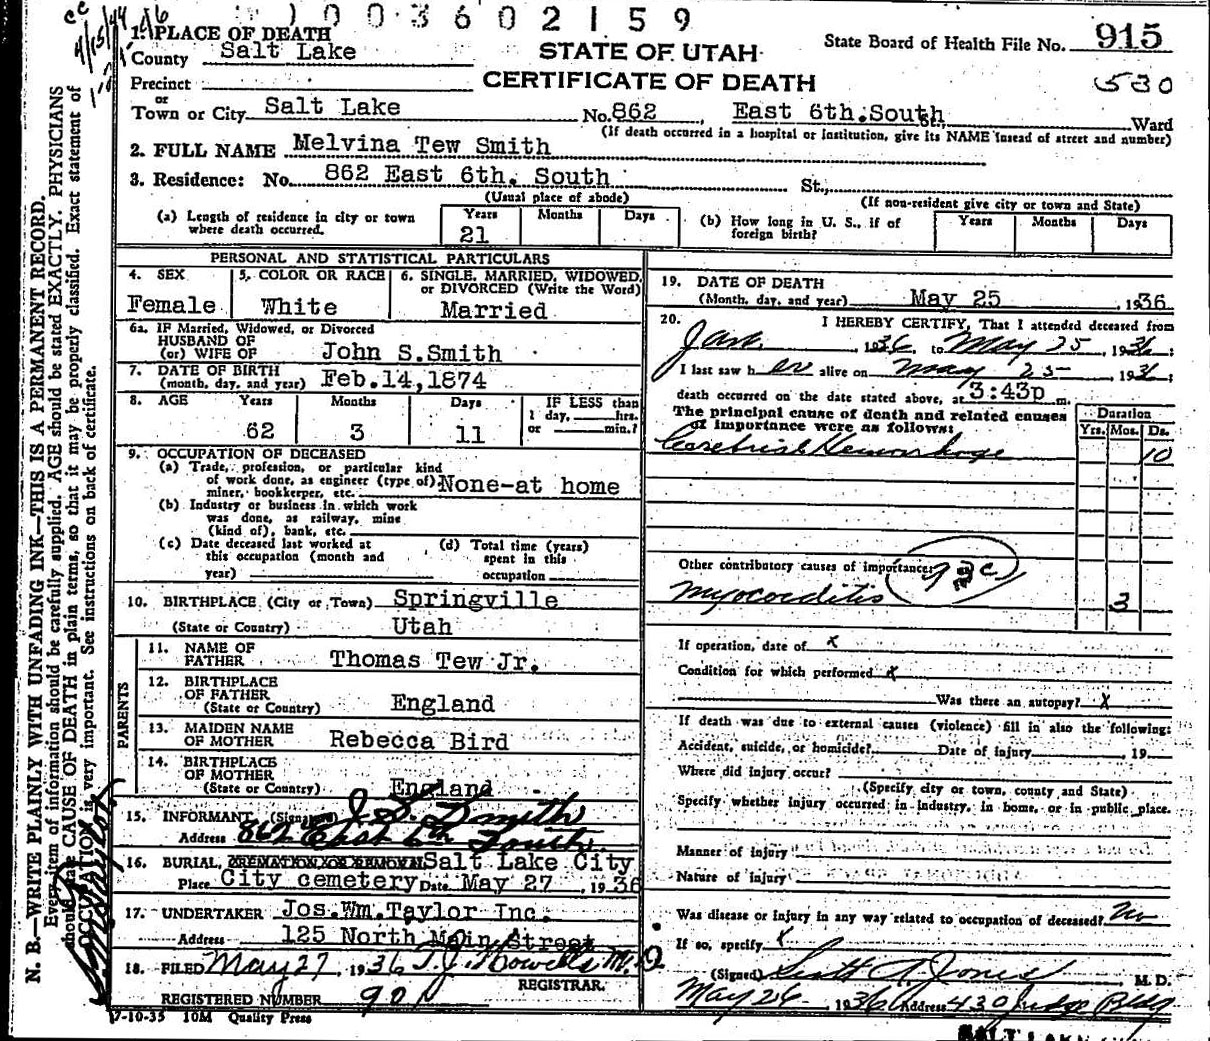 1003602159
1. PLACE OF DEATH
County Salt Lake
STATE OF UTAH
State Board of Health File No. 915
CERTIFICATE OF DEATH
530
Precinct
or
Town or City Salt Lake No. 862 East 6th. South Ward
(If death occurred in a hospital or institution, give its NAME insead of street and number)
2. FULL NAME Melvina Tew Smith
3. Residence: No. 862 East 6th. South St.,
(Usual place of abode) (If non-resident give city or town and State)
(a) Length of residence in city or town where death occurred. Years 21 Months Days
(b) How long in U. S., if of foreign birth? Years Months Days
PERSONAL AND STATISTICAL PARTICULARS
4. SEX Female
5. COLOR OR RACE White
6. SINGLE, MARRIED, WIDOWED, or DIVORCED (Write the Word) Married
6a. IF Married, Widowed, or Divorced
HUSBAND OF
(or) WIFE OF John S. Smith
7. DATE OF BIRTH
(month, day, and year) Feb. 14, 1874
8. AGE Years 62 Months 3 Days 11 IF LESS than 1 day, hrs. or min.?
9. OCCUPATION OF DECEASED
(a) Trade, profession, or particular kind
of work done, as engineer (type of)
miner, bookkerper, etc. None-at home
(b) Industry or business in which work
was done, as railway, mine
(kind of), bank, etc.
(c) Date deceased last worked at
this occupation (month and
year)
(d) Total time (years)
spent in this
occupation
10. BIRTHPLACE (City or Town) Springville
(State or Country) Utah
PARENTS
11. NAME OF
FATHER Thomas Tew Jr.
12. BIRTHPLACE
OF FATHER
(State or Country) England
13. MAIDEN NAME
OF MOTHER Rebecca Bird
14. BIRTHPLACE
OF MOTHER
(State or Country) England
15. INFORMANT (Signed) J. S. Smith
Address 862 East 6th South
16. BURIAL, CREMATION OR REMOVAL Salt Lake City
Place City cemetery Date May 27, 1936
17. UNDERTAKER Jos. Wm. Taylor Inc.
Address 125 North Main Street
18. FILED May 27, 1936 T. J. Howells M. D.
REGISTRAR.
REGISTERED NUMBER 901
7-10-35 10M Quality Press
19. DATE OF DEATH
(Month, day, and year) May 25, 1936
20. I HEREBY CERTIFY, That I attended deceased from
Jan. , 1936, to May 25, 1936;
I last saw her alive on May 25, 1936;
death occurred on the date stated above, at 3:43p m.
The principal cause of death and related causes
of importance were as follows:
Duration
Yrs. Mos. Ds.
Cerebral Hemorrhage 10
Other contributory causes of importance:
Myocarditis 3
If operation, date of x
Condition for which performed x
Was there an autopsy? x
If death was due to external causes (violence) fill in also the following:
Accident, suicide, or homicide? Date of injury 19
Where did injury occur?
(Specify city or town, county and State)
Specify whether injury occurred in industry, in home, or in public place.
Manner of injury
Nature of injury
Was disease or injury in any way related to occupation of deceased? No
If so, specify x
(Signed) Scott A. Jones M. D.
May 26 1936 Address 430 Judge Bldg
SALT LAKE
N. B.—WRITE PLAINLY WITH UNFADING INK—THIS IS A PERMANENT RECORD.
Every item of information should be carefully supplied. AGE should be stated EXACTLY. PHYSICIANS
should state CAUSE OF DEATH in plain terms, so that it may be properly classified. Exact statement of
OCCUPATION is very important. See instructions on back of certificate.